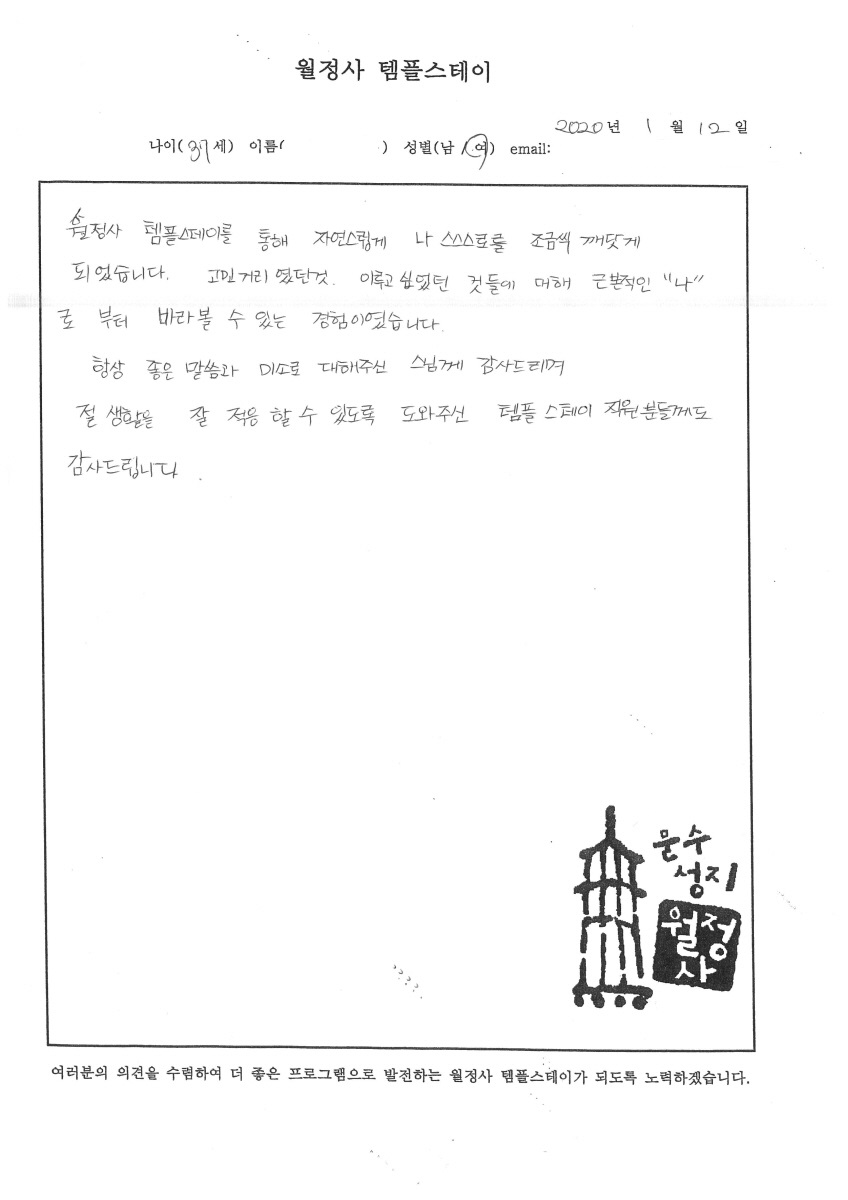 월정사 템플스테이
2020년 1월 12일
나이(37세) 이름( ) 성별(남/여) email:
월정사 템플스테이를 통해 자연스럽게 나 스스로를 조금씩 깨닷게
되었습니다. 고민거리 였던것. 이루고 싶었던 것들에 대해 근본적인 "나"
로 부터 바라볼 수 있는 경험이였습니다.
항상 좋은 말씀과 미소로 대해주신 스님께 감사드리며
절 생활을 잘 적응 할 수 있도록 도와주신 템플 스테이 직원분들께도
감사드립니다.
문수
성지
월정
사
여러분의 의견을 수렴하여 더 좋은 프로그램으로 발전하는 월정사 템플스테이가 되도록 노력하겠습니다.